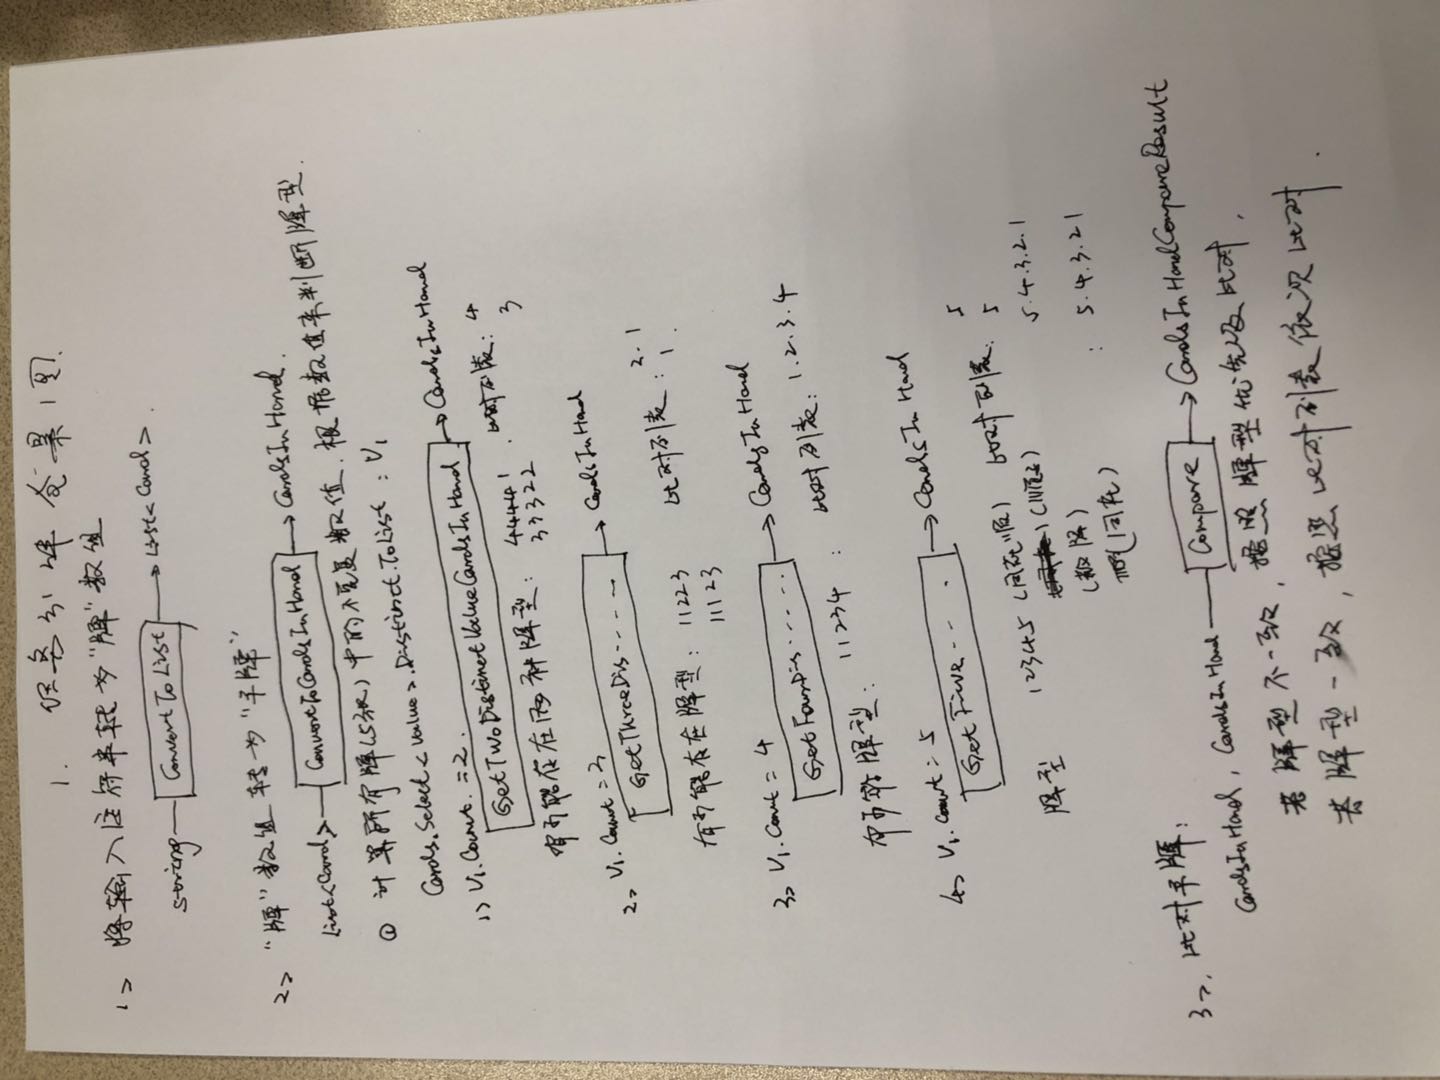 1. 任务分解 答案1页.
1> 将输入注符串转为“牌”数组
string — ConvertToList → List<Card>.
2> “牌”数组转为“手牌”
List<Card> — ConvertToCardsInHand → CardsInHand.
① 计算所有牌(5张)中的不重复数值. 根据数值来判断牌型.
Cards.Select<Value>.Distinct.ToList : V1
1> V1.Count = 2.
GetTwoDistinctValueCardsInHand → CardsInHand
有可能存在两种牌型: 44441. 比对列表: 4
33322 3
2> V1.Count = 3
GetThreeDis...... → CardsInHand
有可能存在牌型: 11223 比对列表: 2.1
11123 : 1.
3> V1.Count = 4
GetFourDis..... → CardsInHand
有可能牌型: 11234 : 比对列表: 1.2.3.4
4> V1.Count = 5
GetFive... . → CardsInHand
牌型 12345 (同花顺) 比对列表: 5
(顺子) 5
(散牌) 5.4.3.2.1
(同花) : 5.4.3.21
3>. 比对手牌:
CardsInHand, CardsInHand — Compare → CardsInHandCompareResult
若牌型不一致, 按照牌型优先级比对,
若牌型一致, 按照比对列表依次比对.